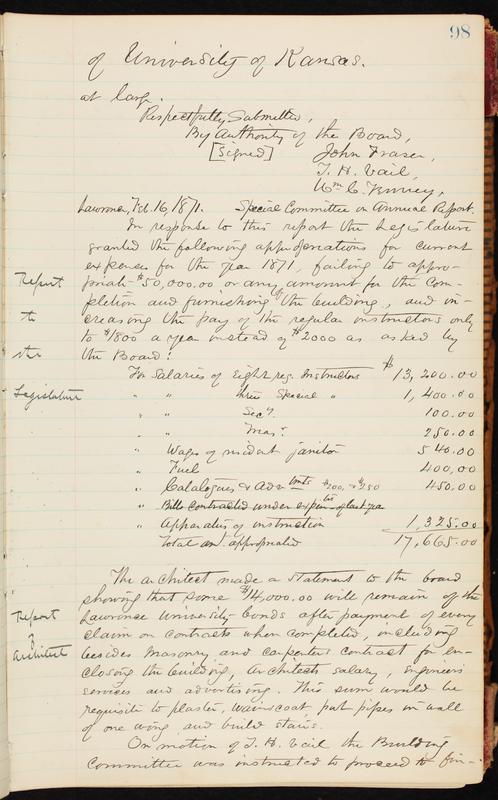 98
of University of Kansas.
at large.
Respectfully Submitted,
By authority of the Board,
[Signed] John Fraser,
T. H. Vail,
Wm C. Tenney,
Lawrence, Feb. 16, 1871. Special Committee on Annual Report.
In response to this report the Legislature
granted the following appropriations for current
expenses for the year 1871, failing to appro-
priate $50,000.00 or any amount for the com-
pletion and furnishing of the building, and in-
creasing the pay of the regular instructors only
to $1800 a year instead of $2000 as asked by
the Board:
Report
to
the
Legislature
For Salaries of Eight reg. Instructors $13,200.00
" " three Special " 1,400.00
" " Secy. 100.00
" " Treas. 250.00
" Wages of resident janitor 540.00
" Fuel 400.00
" Catalogues & Advtmts $200, & $250 450.00
" Bills contracted under expen of last year
" Apparatus of instruction 1,325.00
Total amt appropriated 17,665.00
The architect made a statement to the board
showing that some $14,000.00 will remain of the
Lawrence University bonds after payment of every
claim on contracts when completed, including
besides masonry and carpenters contract for en-
closing the building, Architects salary, engineers
services and advertising. This sum would be
requisite to plaster, wainscoat put pipes in wall
of one wing and build stairs.
Report
of
Architect
On motion of T. H. Vail the Building
Committee was instructed to proceed to fin-